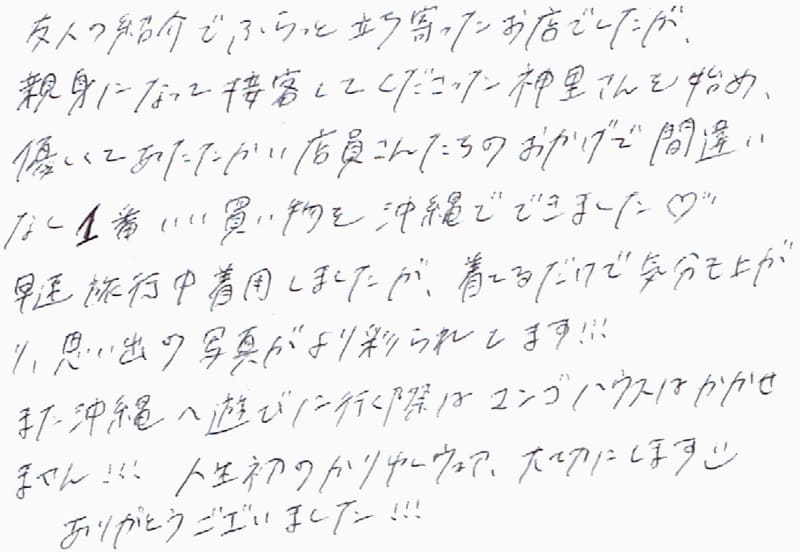 友人の紹介でふらっと立ち寄ったお店でしたが、
親身になって接客してくださった神里さんを始め、
優しくてあたたかい店員さんたちのおかげで間違い
なし1番いい買い物を沖縄でできました♡
早速旅行中着用しましたが、着てるだけで気分も上が
り、思い出の写真がより彩られてます!!!
また沖縄へ遊びに行く際はマンゴハウスはかかせ
ません!!! 人生初のかりゆしウェア、大切にします
ありがとうございました!!!